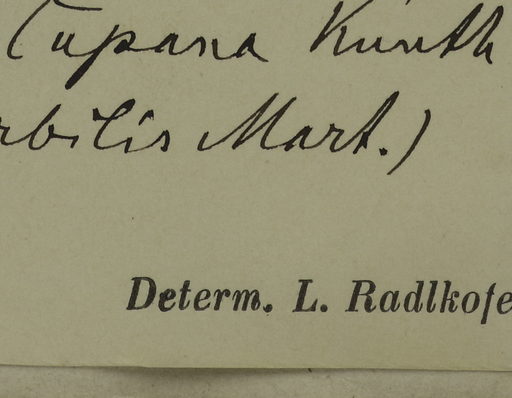 Cupana Kunth
rbilis Mart.)
Determ. L. Radlkofe